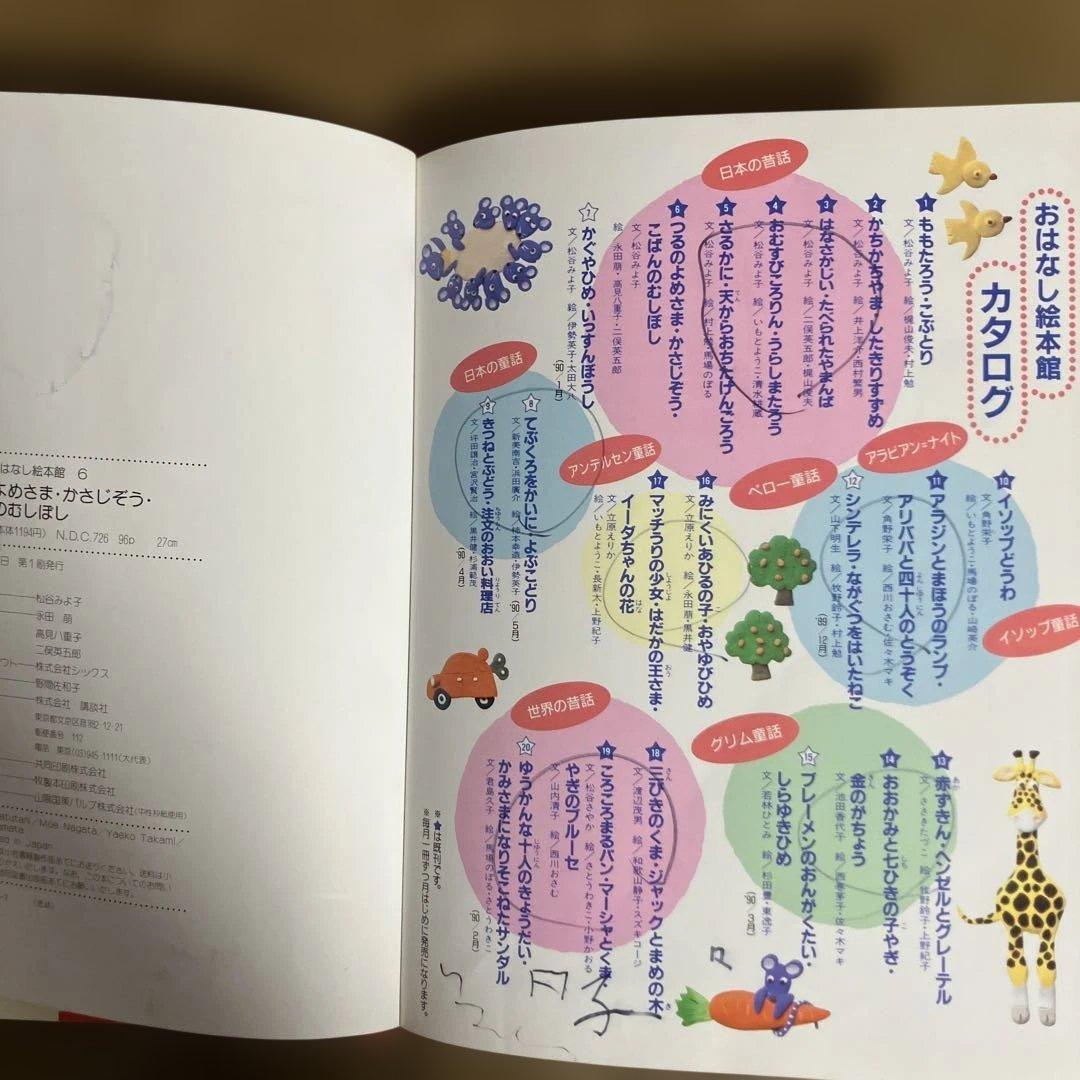 おはなし絵本館
カタログ
日本の昔話
1 ももたろう・こぶとり
文／松谷みよ子 絵／梶山俊夫・村上勉
2 かちかちやま・したきりすずめ
文／松谷みよ子 絵／井上洋介・西村繁男
3 はなさかじい・たべられたやまんば
文／松谷みよ子 絵／二俣英五郎・梶山俊夫
4 おむすびころりん・うらしまたろう
文／松谷みよ子 絵／いもとようこ・清水耕蔵
5 さるかに・天からおちたげんごろう
文／松谷みよ子 絵／村上勉・馬場のぼる
6 つるのよめさま・かさじぞう・
こばんのむしぼし
文／松谷みよ子
絵／永田萠・高見八重子・二俣英五郎
7 かぐやひめ・いっすんぼうし
文／松谷みよ子 絵／伊勢英子・太田大八
('90/1月)
日本の童話
8 てぶくろをかいに・よぶこどり
文／新美南吉・浜田廣介 絵／柿本幸造・伊勢英子
('90/5月)
9 きつねとぶどう・注文のおおい料理店
文／坪田譲治・宮沢賢治 絵／黒井健・杉浦範茂
('90/4月)
イソップ童話
10 イソップどうわ
文／角野栄子
絵／いもとようこ・馬場のぼる・山崎英介
アラビアン=ナイト
11 アラジンとまほうのランプ・
アリババと四十人のとうぞく
文／角野栄子 絵／西川おさむ・佐々木マキ
ペロー童話
12 シンデレラ・ながぐつをはいたねこ
文／山下明生 絵／牧野鈴子・村上勉
('89/12月)
アンデルセン童話
16 みにくいあひるの子・おやゆびひめ
文／立原えりか 絵／永田萠・黒井健
17 マッチうりの少女・はだかの王さま・
イーダちゃんの花
文／立原えりか
絵／いもとようこ・長新太・上野紀子
グリム童話
13 赤ずきん・ヘンゼルとグレーテル
文／ささきたづこ 絵／牧野鈴子・上野紀子
14 おおかみと七ひきの子やぎ・
金のがちょう
文／池田香代子 絵／西巻茅子・佐々木マキ
15 ブレーメンのおんがくたい・
しらゆきひめ
文／若林ひとみ 絵／杉田豊・東逸子
('90/3月)
世界の昔話
18 三びきのくま・ジャックとまめの木
文／渡辺茂男 絵／和歌山静子・スズキコージ
19 ころころまるパン・マーシャとくま・
やぎのブルーセ
文／松谷さやか 絵／さとうわきこ・小野かおる
文／山内清子 絵／西川おさむ
20 ゆうかんな十人のきょうだい・
かみさまになりそこねたサンダル
文／君島久子 絵／馬場のぼる・さとうわきこ
('90/2月)
※★は既刊です。
※毎月一冊ずつ月はじめに発売になります。
はなし絵本館 6
よめさま・かさじぞう・
のむしぼし
本体1194円) N.D.C.726 96p 27cm
日 第1刷発行
松谷みよ子
永田 萠
高見八重子
二俣英五郎
アウト――株式会社シックス
野間佐和子
株式会社 講談社
東京都文京区音羽2-12-21
郵便番号 112
電話 東京(03)945-1111(大代表)
共同印刷株式会社
牧製本印刷株式会社
山陽国策パルプ株式会社(中性抄紙使用)
Moe Nagata/Yaeko Takami/
in Japan